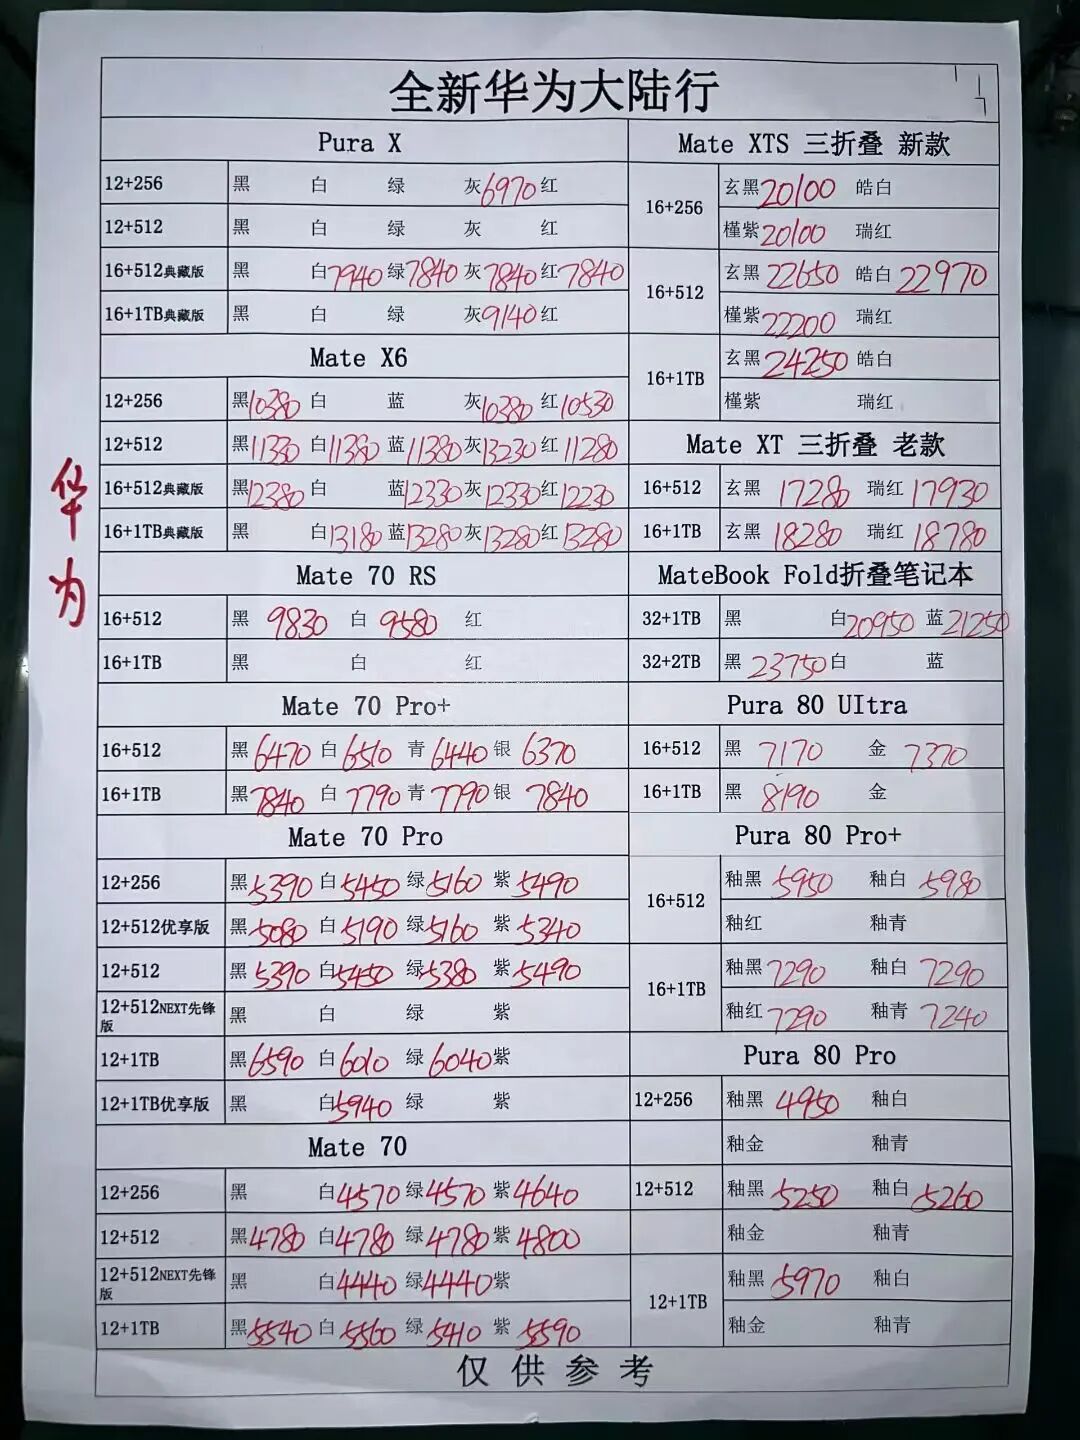 全新华为大陆行
华为
Pura X
12+256 黑 白 绿 灰6970 红
12+512 黑 白 绿 灰 红
16+512典藏版 黑 白7940 绿7840 灰7840 红7840
16+1TB典藏版 黑 白 绿 灰9140 红
Mate X6
12+256 黑10380 白 蓝 灰10380 红10530
12+512 黑11330 白11380 蓝11380 灰13230 红11280
16+512典藏版 黑12380 白 蓝12330 灰12330 红12230
16+1TB典藏版 黑 白13180 蓝13280 灰13280 红13280
Mate 70 RS
16+512 黑 9830 白 9580 红
16+1TB 黑 白 红
Mate 70 Pro+
16+512 黑6470 白6510 青6440 银6370
16+1TB 黑7840 白7790 青7790 银7840
Mate 70 Pro
12+256 黑5390 白5450 绿5160 紫5490
12+512优享版 黑5080 白5190 绿5160 紫5340
12+512 黑5390 白5450 绿5380 紫5490
12+512NEXT先锋版 黑 白 绿 紫
12+1TB 黑6590 白6010 绿6040 紫
12+1TB优享版 黑 白5940 绿 紫
Mate 70
12+256 黑 白4570 绿4570 紫4640
12+512 黑4780 白4780 绿4780 紫4800
12+512NEXT先锋版 黑 白4440 绿4440 紫
12+1TB 黑5540 白5560 绿5410 紫5590
Mate XTS 三折叠 新款
16+256 玄黑20100 皓白
槿紫20100 瑞红
16+512 玄黑22650 皓白22970
槿紫22200 瑞红
16+1TB 玄黑24250 皓白
槿紫 瑞红
Mate XT 三折叠 老款
16+512 玄黑 17280 瑞红17930
16+1TB 玄黑 18280 瑞红 18780
MateBook Fold折叠笔记本
32+1TB 黑 白20950 蓝21250
32+2TB 黑23750 白 蓝
Pura 80 UItra
16+512 黑 7170 金 7370
16+1TB 黑 8190 金
Pura 80 Pro+
16+512 釉黑 5950 釉白 5980
釉红 釉青
16+1TB 釉黑7290 釉白 7290
釉红7290 釉青 7240
Pura 80 Pro
12+256 釉黑 4950 釉白
釉金 釉青
12+512 釉黑 5250 釉白5260
釉金 釉青
12+1TB 釉黑 5970 釉白
釉金 釉青
仅供参考